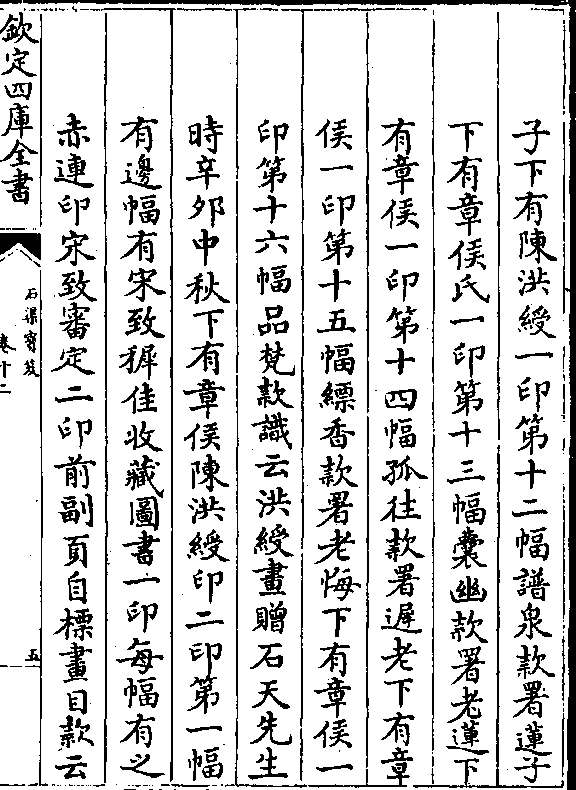 子下有陳洪綬一印第十二幅譜泉款署蓮子
下有章侯氏一印第十三幅囊幽款署老蓮下
有章侯一印第十四幅孤往款署遲老下有章
侯一印第十五幅縹香款署老悔下有章侯一
印第十六幅品梵款識云洪綬畫贈石天先生
時辛夘中秋下有章侯陳洪綬印二印第一幅
有邊幅有宋致穉佳收藏圖書一印每幅有之
赤連印宋致審定二印前副頁自標畫目款云
欽定四庫全書
石渠寶笈
卷十二
五